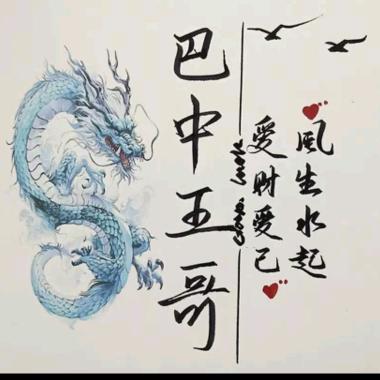 巴中王哥
Good Luck
風生水起
愛財愛己